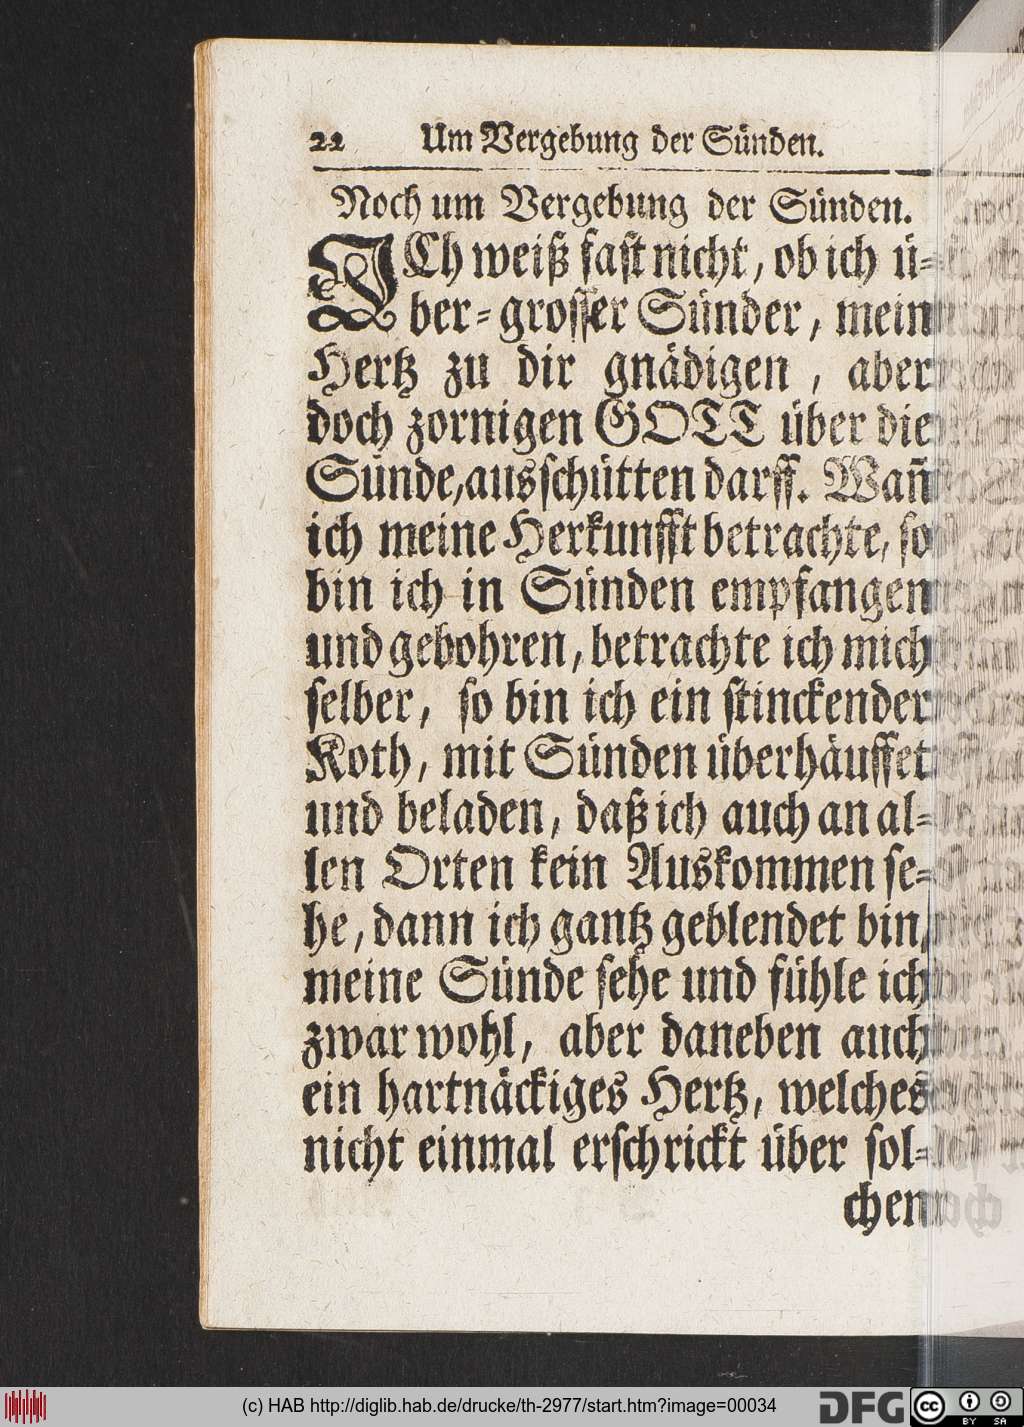 22 Um Vergebung der Sünden.
Noch um Vergebung der Sünden.
ICh weiß fast nicht, ob ich ü-
ber-grosser Sünder, mein
Hertz zu dir gnädigen, aber
doch zornigen GOTT über die
Sünde, ausschütten darff. Wañ
ich meine Herkunfft betrachte, so
bin ich in Sünden empfangen
und gebohren, betrachte ich mich
selber, so bin ich ein stinckender
Koth, mit Sünden überhäuffet
und beladen, daß ich auch an al-
len Orten kein Auskommen se-
he, dann ich gantz geblendet bin,
meine Sünde sehe und fühle ich
zwar wohl, aber daneben auch
ein hartnäckiges Hertz, welches
nicht einmal erschrickt über sol-
chen
(c) HAB http://diglib.hab.de/drucke/th-2977/start.htm?image=00034
DFG
cc BY SA